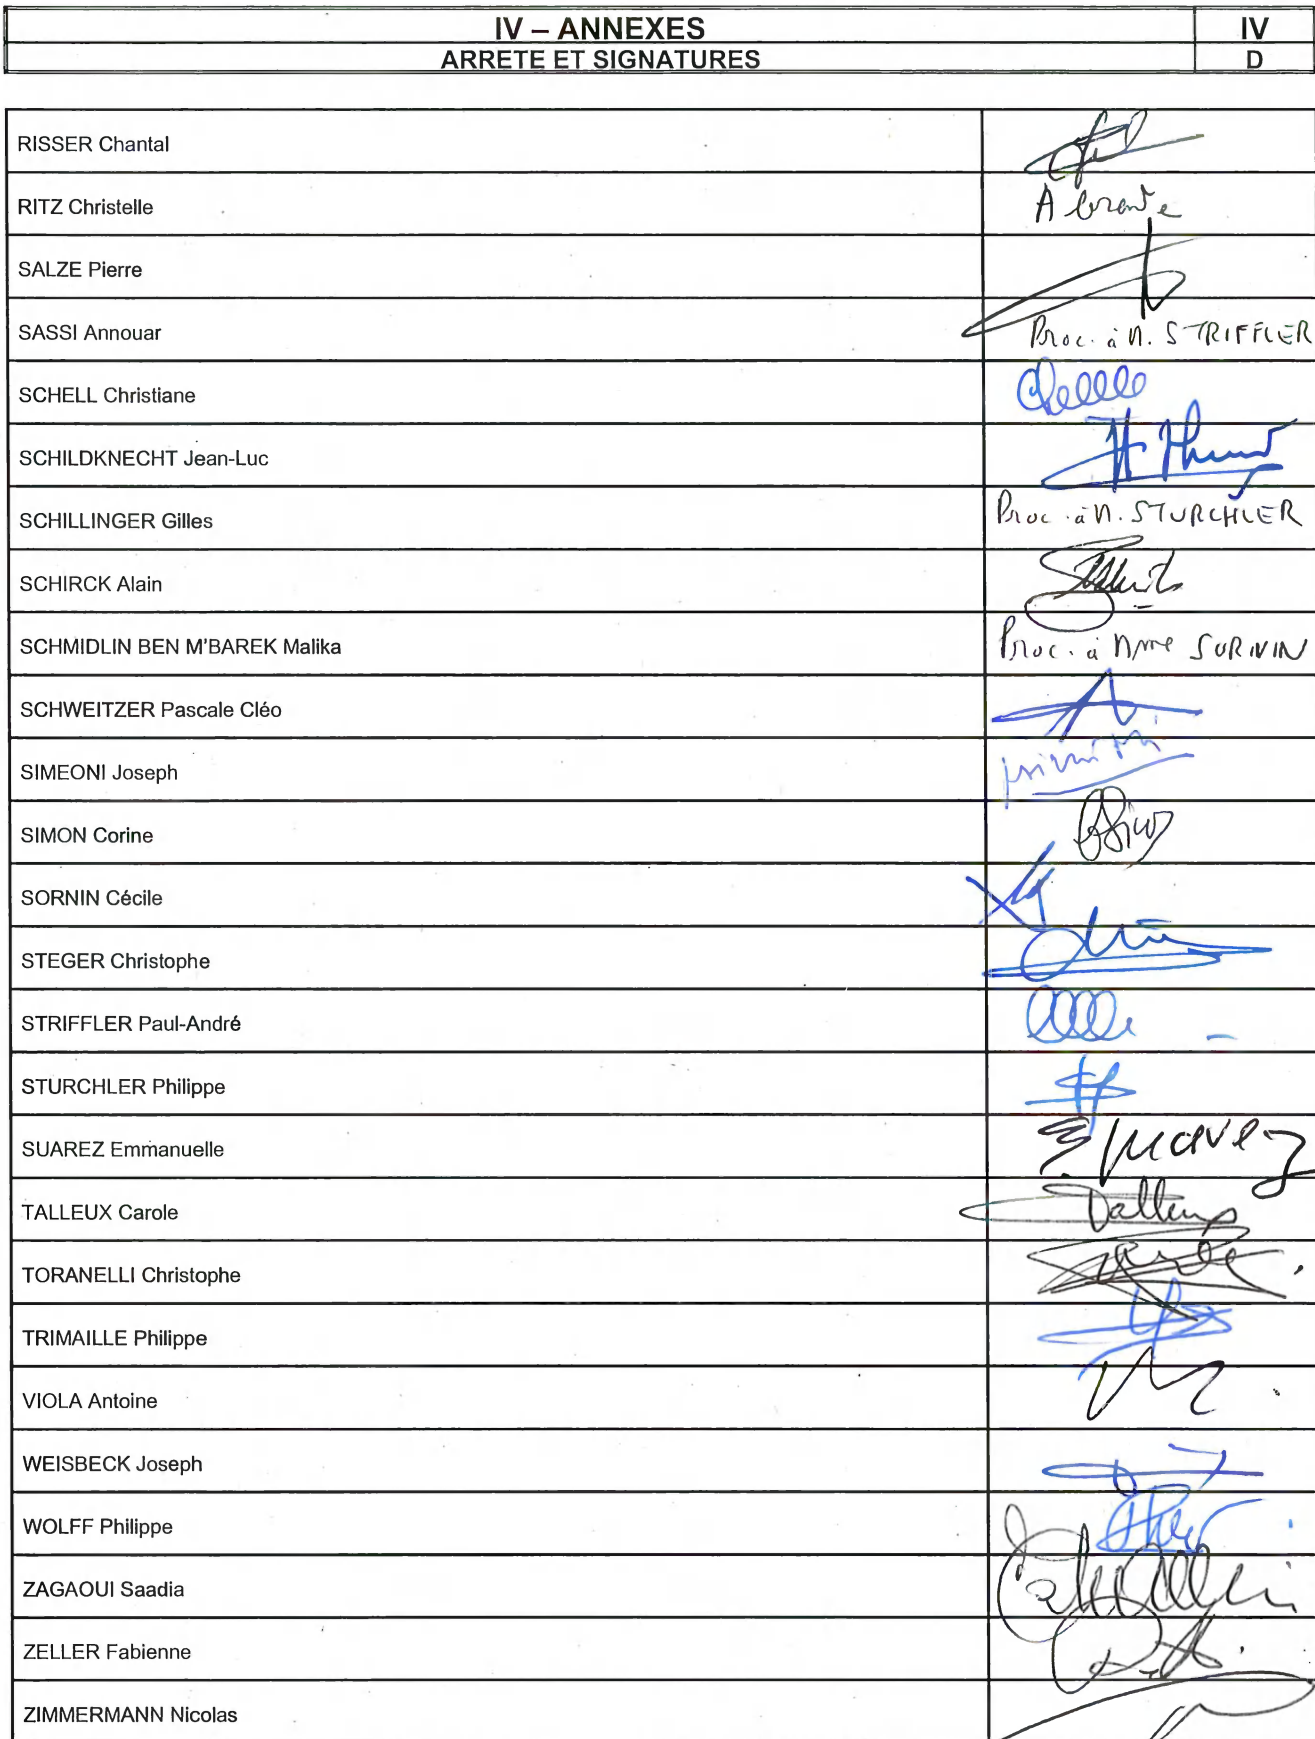 IV – ANNEXES IV
ARRETE ET SIGNATURES D
RISSER Chantal
RITZ Christelle A brente
SALZE Pierre
SASSI Annouar Proc. à M. STRIFFLER
SCHELL Christiane
SCHILDKNECHT Jean-Luc
SCHILLINGER Gilles Proc. à M. STURCHLER
SCHIRCK Alain
SCHMIDLIN BEN M'BAREK Malika Proc. à Mme SORNIN
SCHWEITZER Pascale Cléo
SIMEONI Joseph
SIMON Corine
SORNIN Cécile
STEGER Christophe
STRIFFLER Paul-André
STURCHLER Philippe
SUAREZ Emmanuelle
TALLEUX Carole
TORANELLI Christophe
TRIMAILLE Philippe
VIOLA Antoine
WEISBECK Joseph
WOLFF Philippe
ZAGAOUI Saadia
ZELLER Fabienne
ZIMMERMANN Nicolas